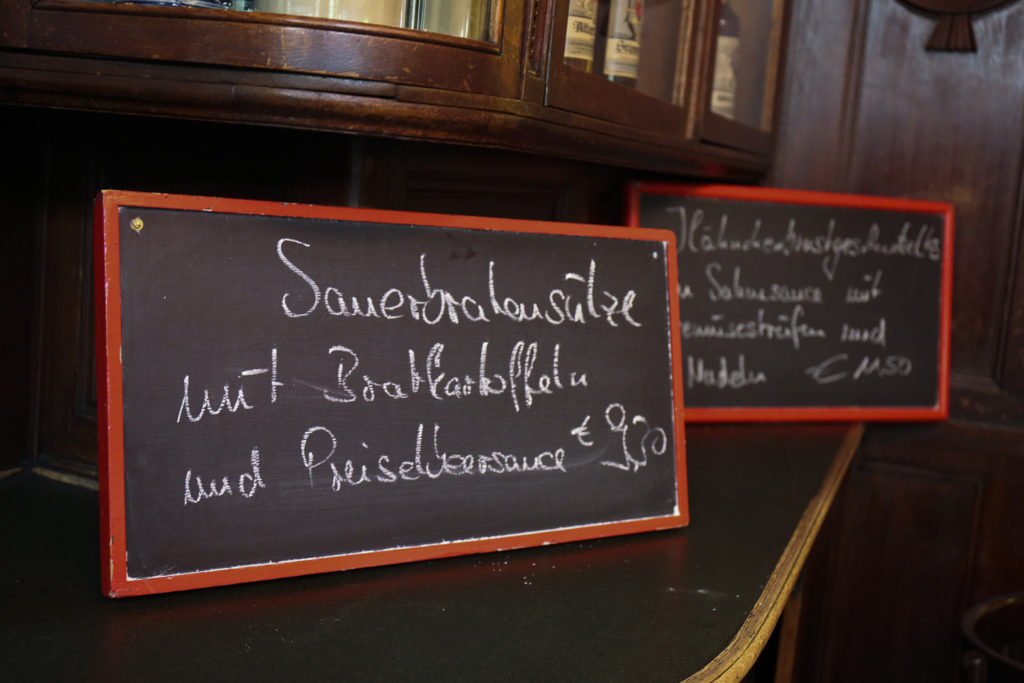 Sauerbratensülze
mit Bratkartoffeln
und Preiselbeersauce € 9,30
Hähnchenbrustgeschnetzeltes
in Sahnesauce mit
Gemüsestreifen und
Nudeln € 11.50